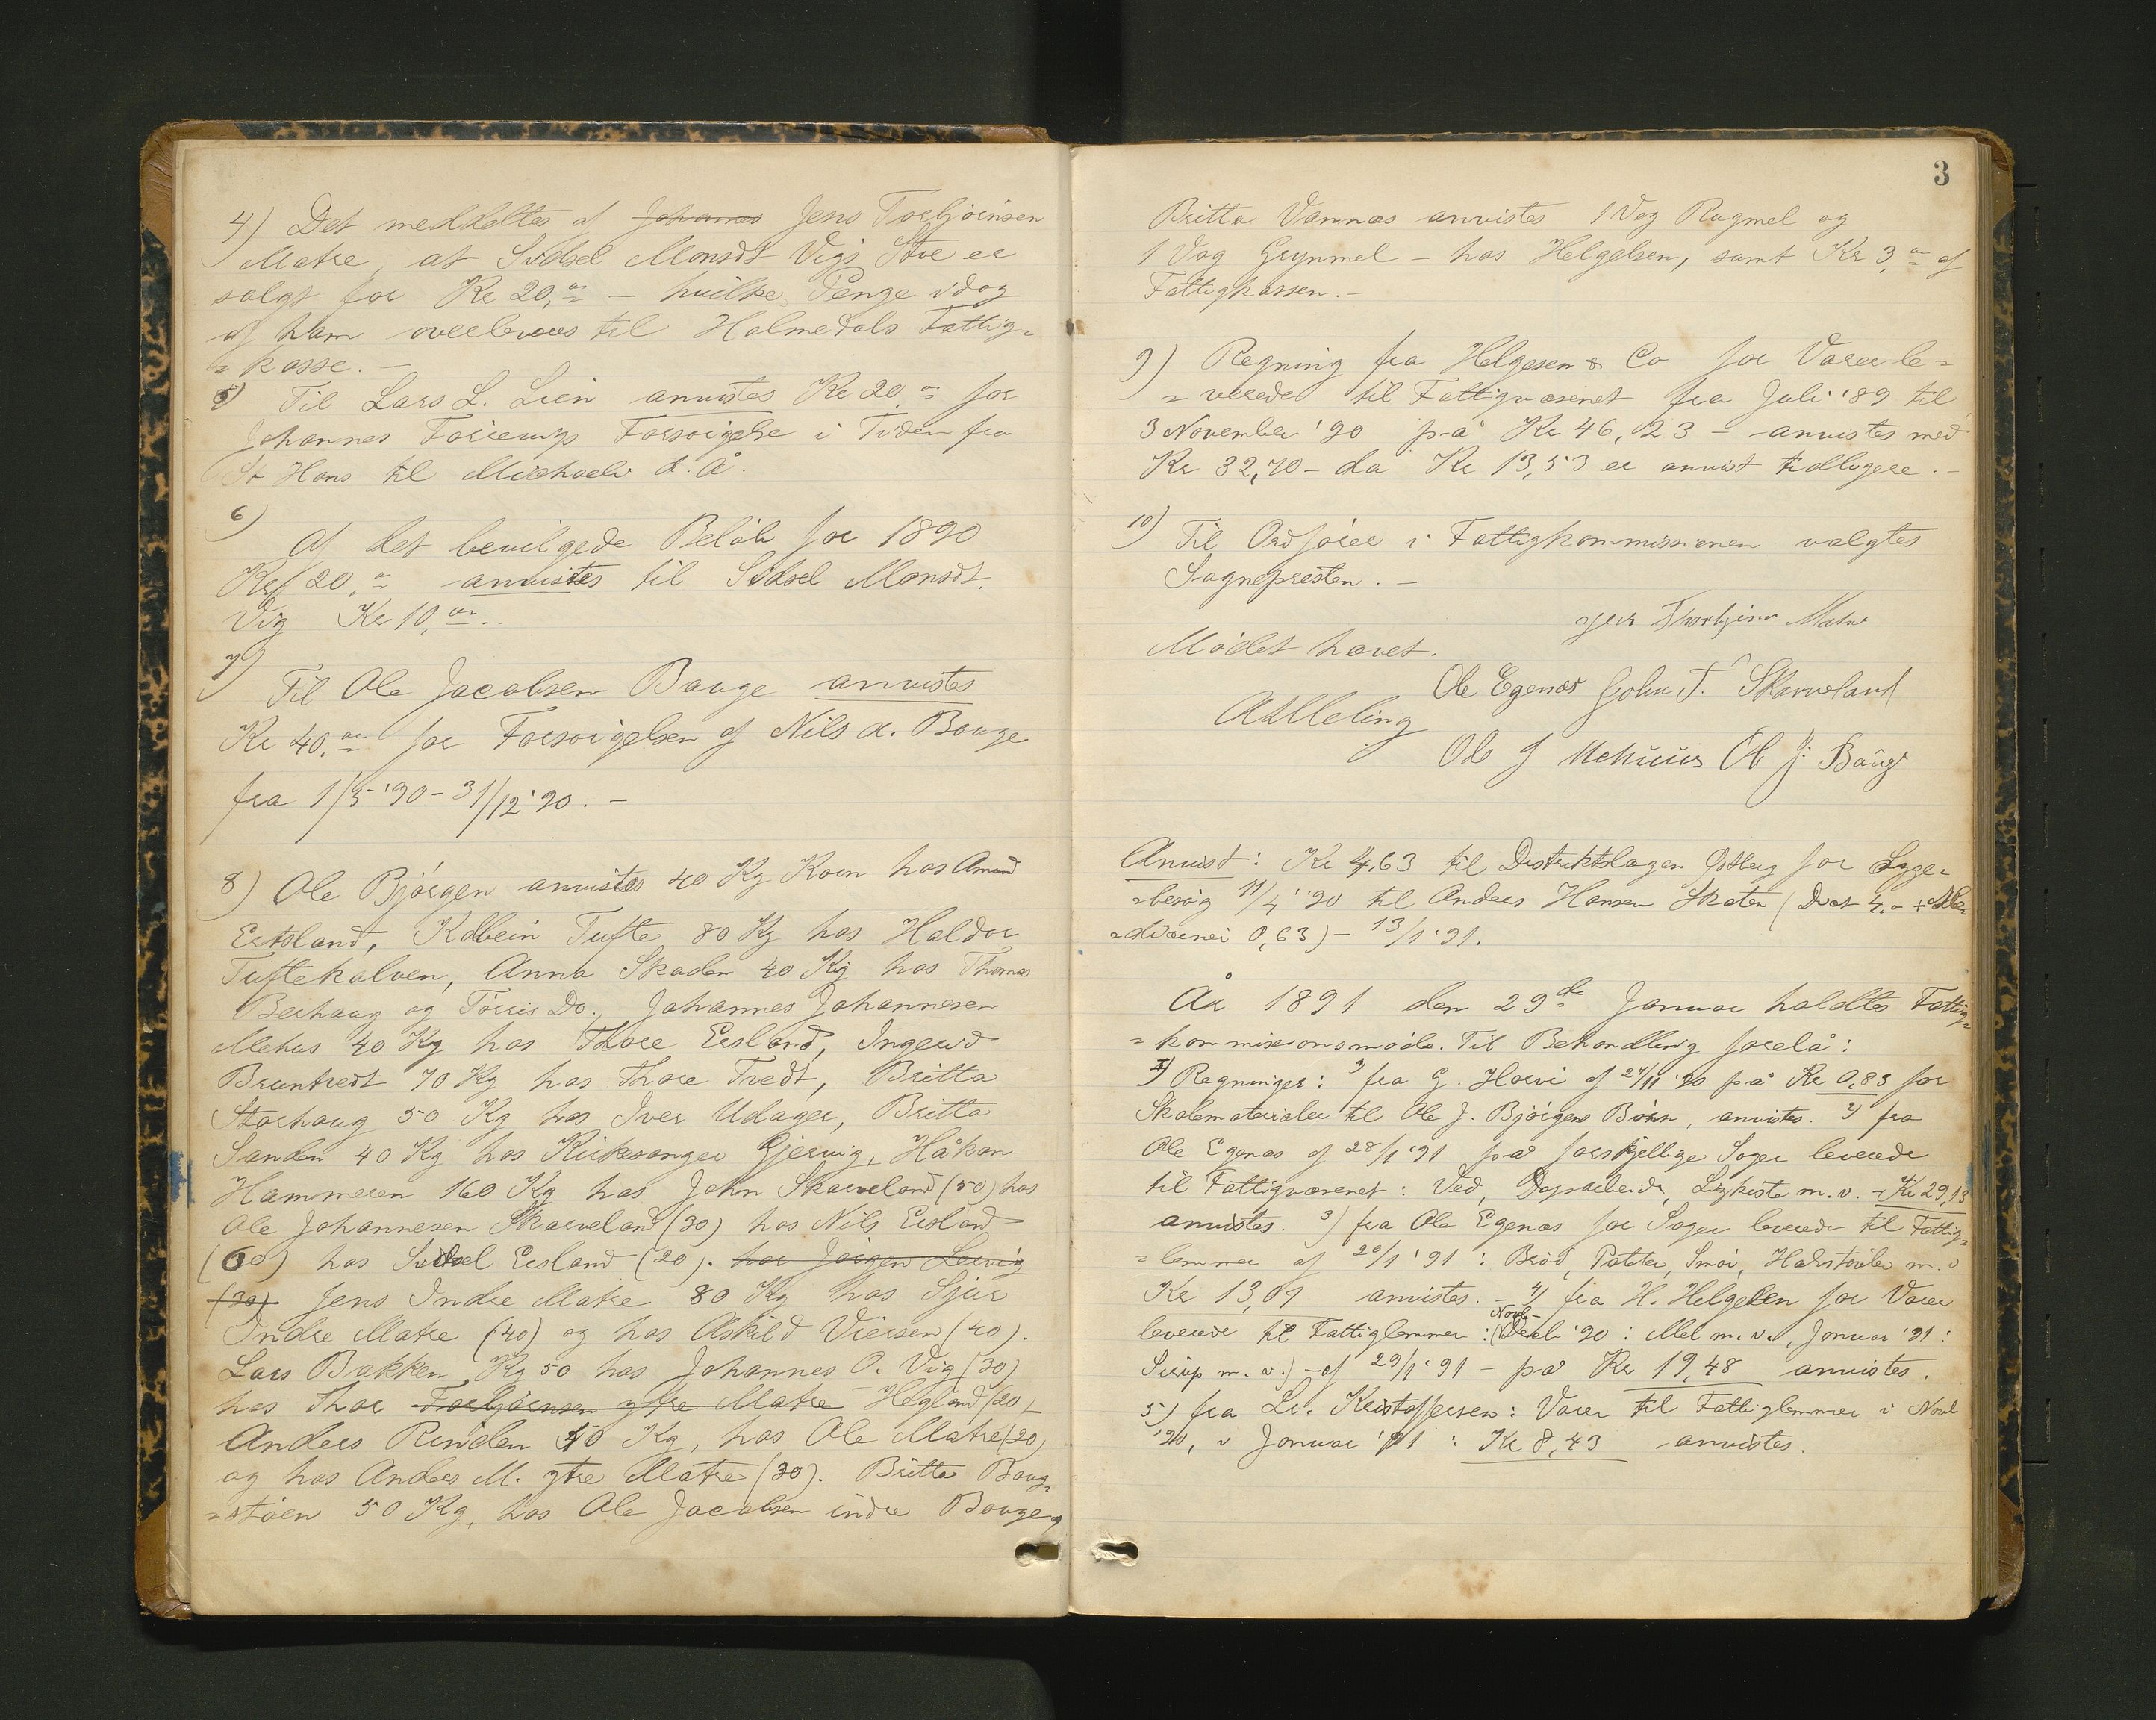 4) Det meddeltes af Johannes Jens Torbjørnsen
Matre, at Sidsel Monsdt Vigs Stue er
solgt for Kr 20,00 – hvilke Penge idag
af ham overleveres til Holmedals Fattig=
=kasse. –
5) Til Lars L. Lien anvistes Kr 20,00 for
Johannes Forsørgelse i Tiden fra
St Hans til Michaeli d. å.
6)
Af det bevilgede Beløb for 1890
Kr 20,00 anvistes til Sidsel Monsdt.
Vig Kr 10,00.
7)
Til Ole Jacobsen Bauge anvistes
Kr 40,00 for Forsørgelsen af Nils A. Bauge
fra 1/5 '90 – 31/12 '90. –
8) Ole Bjørgen anvistes 40 Kg Korn hos Amund
Ertsland, Kolbein Tufte 80 Kg hos Haldor
Tuftekalven, Anna Skaden 40 Kg hos Thomas
Berhaug og Tørris Do., Johannes Johannesen
Mehus 40 Kg hos Thore Eesland, Ingerid
Bruntredt 70 Kg hos Thore Tredt, Britta
Storhaug 50 Kg hos Iver Udager, Britta
Sanden 40 Kg hos Kirkesanger Gjervig, Håkon
Hammeren 160 Kg hos John Skarveland (50) hos
Ole Johannesen Skarveland (30) hos Nils Eesland
(60) hos Sidsel Eesland (20). hos Jørgen Leevig
(30) Jens Indre Matre 80 Kg hos Sjur
Indre Matre (40) og hos Askild Viersen (40).
Lars Bakken Kg 50 hos Johannes O. Vig (30)
hos Thor Torbjørnsen ytre Matre Hegland (20)
Anders Rinden 50 Kg, hos Ole Matre (20)
og hos Anders M. ytre Matre (30). Britta Baug=
=støen 50 Kg, hos Ole Jacobsen indre Bauge,
3
Britta Vannes anvistes 1 Vog Rugmel og
1 Vog Grynmel – hos Helgesen, samt Kr 3,00 af
Fattigkassen. –
9) Regning fra Helgesen & Co for Varer le=
=verede til Fattigvæsenet fra Juli '89 til
3 November '90 på Kr 46,23 – anvistes med
Kr 32,70 – da Kr 13,53 er anvist tidligere. –
10)
Til Ordfører i Fattigkommissionen valgtes
Sognepresten. –
Jens Thorbjørn Matre
Mødet hævet.
Ole Egenæs John T. Skarveland
Ole J Mehuus Ol J. Baug
Anvist: Kr 4,63 til Distriktslægen for Lyge=
=besøg 11/4 '90 til Anders Hansen Skaten (Diæt 4,00 +
0,63) – 13/1 '91.
År 1891 den 29de Januar holdtes Fattig=
=kommissionsmøde. Til Behandling forelå:
I) Regninger: 1) fra G. Hoevi af 27/11 '90 på Kr 0,83 for
Skolematerialer til Ole J. Bjørgens Børn, anvistes. 2) fra
Ole Egenæs af 28/1 '91 på forskjellige Sager leverede
til Fattigvæsenet: Ved, Dagsarbeide, Ligkiste m. v. – Kr 29,13
anvistes. 3) fra Ole Egenæs for Sager leverede til Fattig=
=lemmer af 26/1 '91: Brød, Poteter, Smør, m. v
Kr 13,01 anvistes. – 4) fra H. Helgesen for Varer
leverede til Fattiglemmer: (Novb– Decb '90: Mel m. v., Januar '91:
Sirup m. v.) – af 29/1 '91 – på Kr 19,48 anvistes.
5) fra Kristoffersen: Varer til Fattiglemmer i Novb
'90, i Januar '91: Kr 8,43 anvistes.